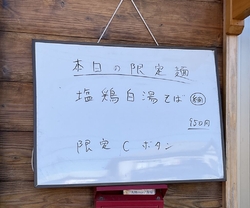 本日の限定麺
塩鶏白湯そば 細
950円
限定Cボタン